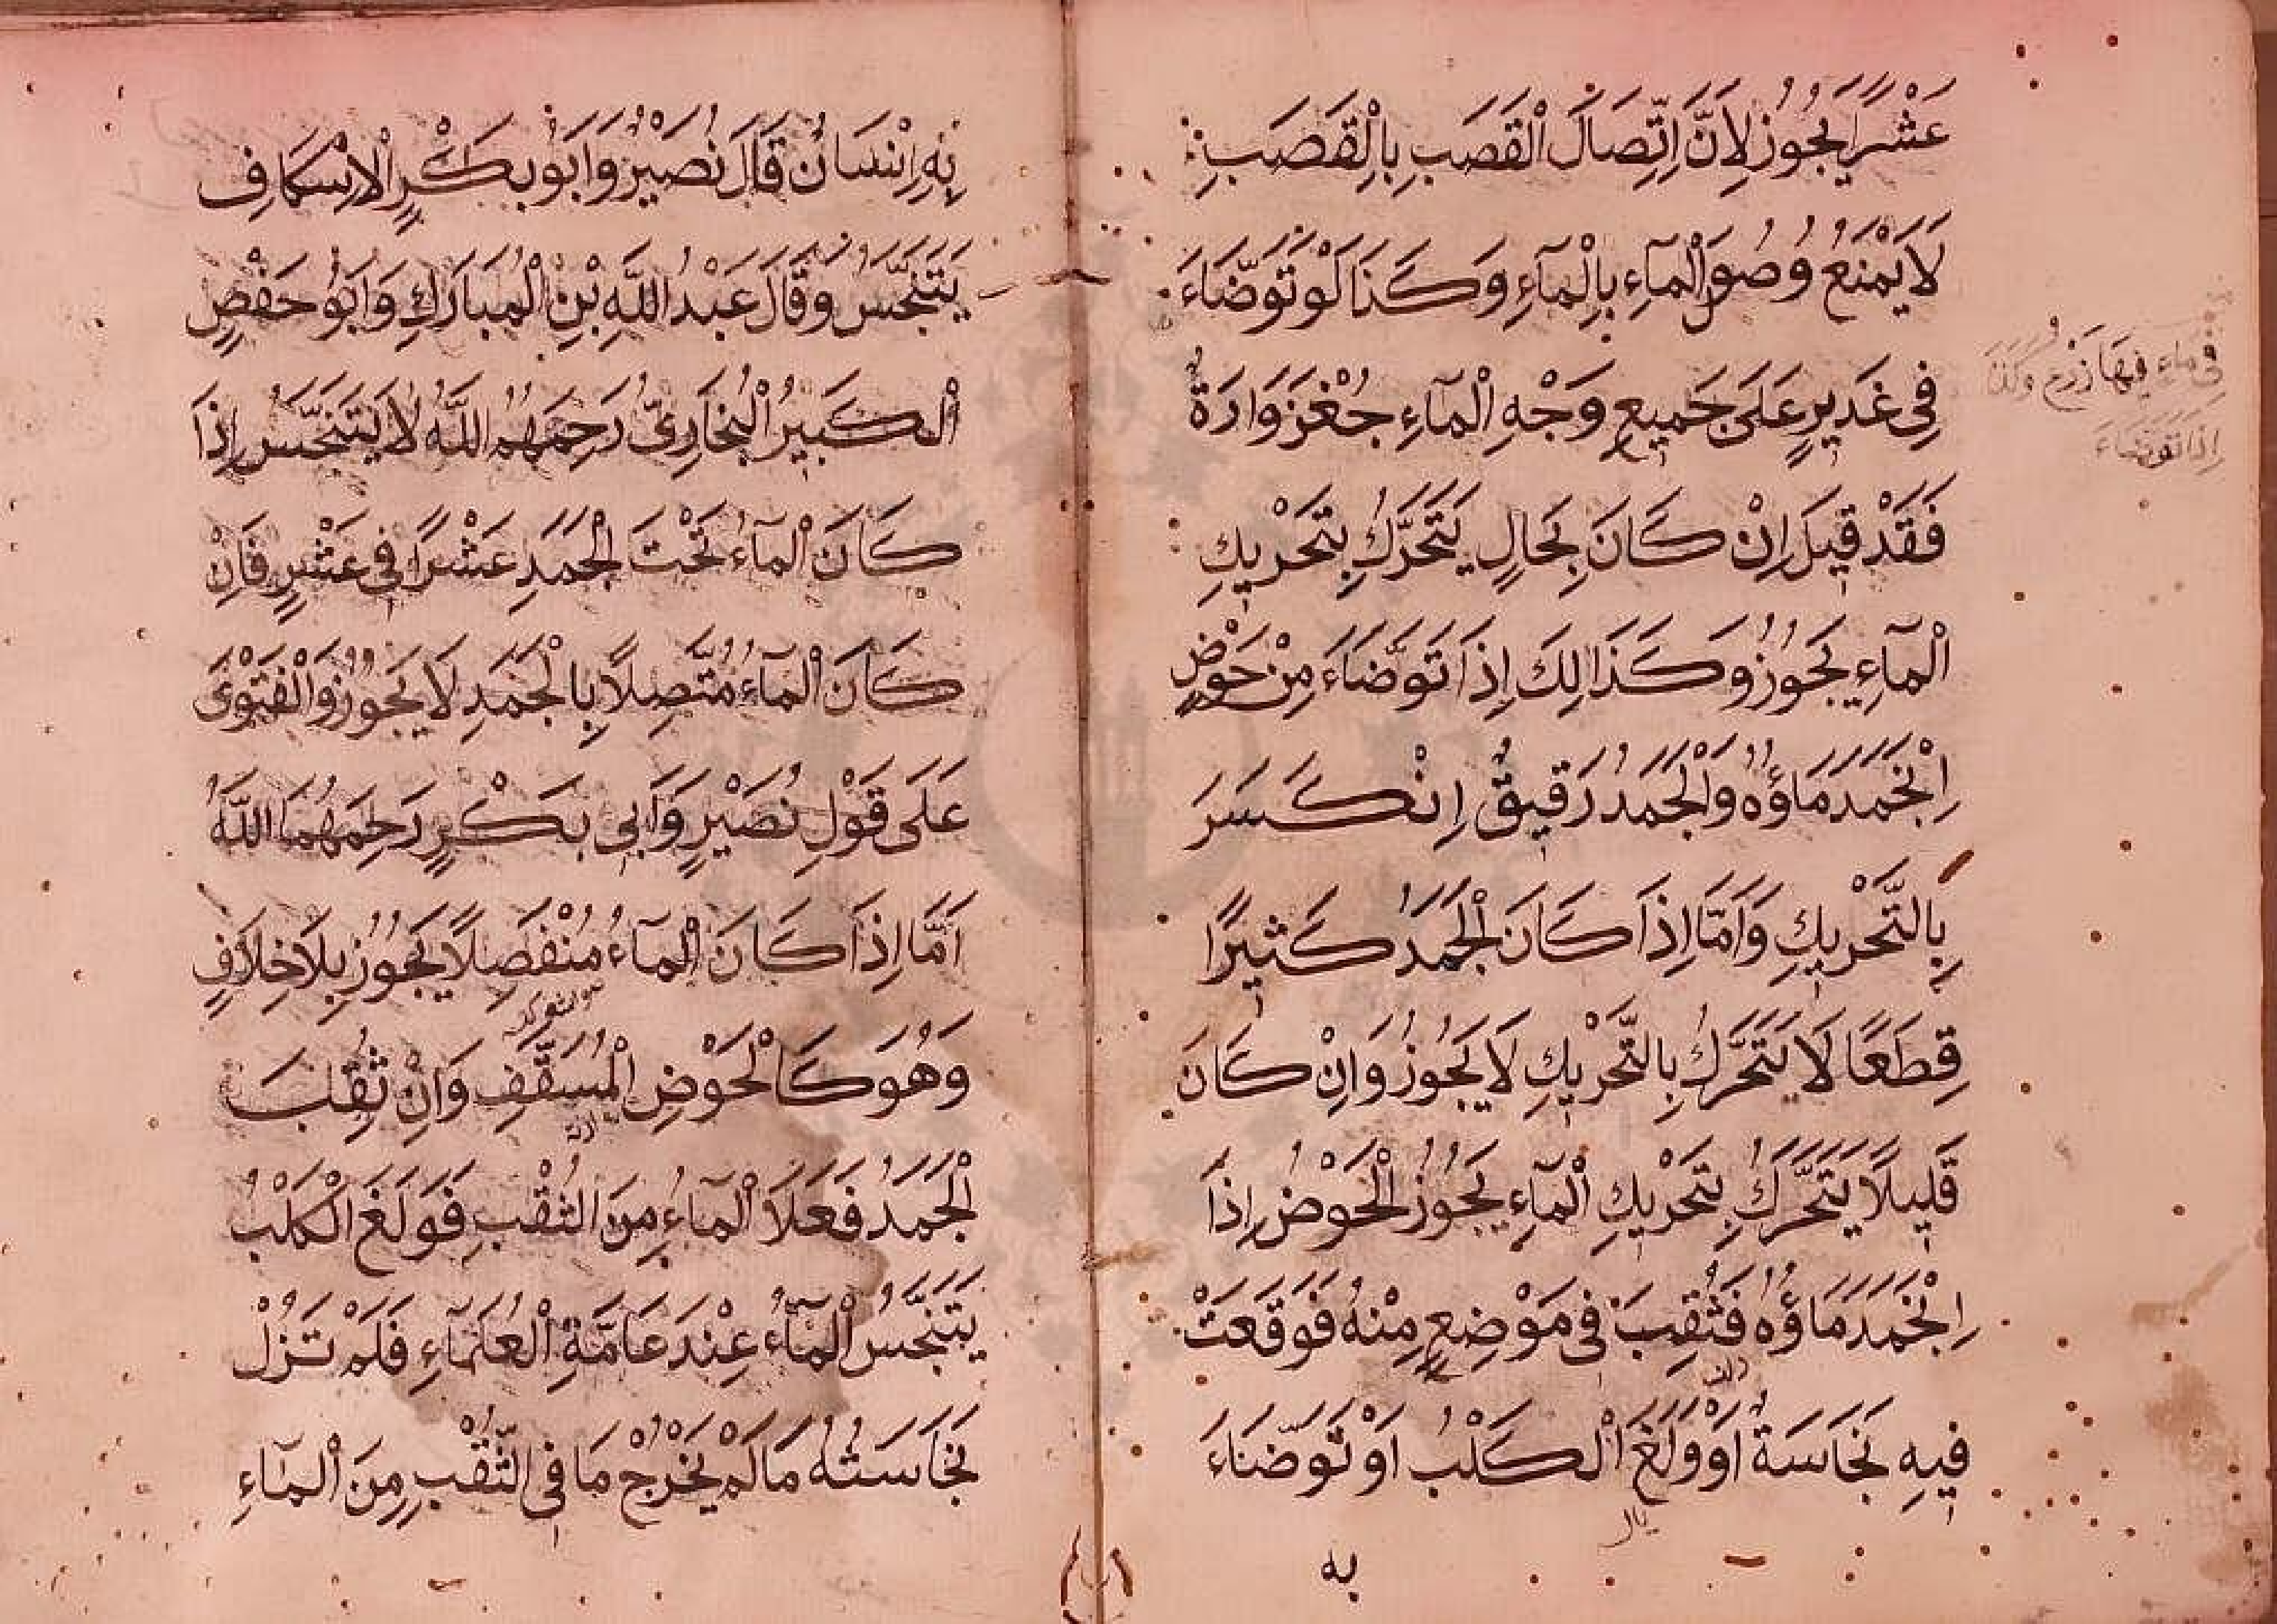 عَشْرًا يَجُوزُ لِاَنَّ اِتِّصَالَ الْقَصَبِ بِالْقَصَبِ
لَا يَمْنَعُ وُصُولَ الْمَآءِ بِالْمَآءِ وَكَذَا لَوْ تَوَضَّاءَ
فِى غَدِيرٍ عَلَى جَمِيعِ وَجْهِ الْمَآءِ جُغْزَوَارَةٌ
فَقَدْ قِيلَ اِنْ كَانَ بِحَالٍ يَتَحَرَّكُ بِتَحْرِيكِ
الْمَآءِ يَجُوزُ وَكَذَالِكَ اِذَا تَوَضَّاءَ مِنْ حَوْضٍ
اِنْجَمَدَ مَاؤُهُ وَالْجَمَدُ رَقِيقٌ اِنْكَسَرَ
بِالتَّحْرِيكِ وَاَمَّا اِذَا كَانَ الْجَمَدُ كَثِيرًا
قِطَعًا لَا يَتَحَرَّكُ بِالتَّحْرِيكِ لَا يَجُوزُ وَاِنْ كَانَ
قَلِيلًا يَتَحَرَّكُ بِتَحْرِيكِ الْمَآءِ يَجُوزُ الْحَوْضُ اِذَا
اِنْجَمَدَ مَاؤُهُ فَثُقِبَ فِى مَوْضِعٍ مِنْهُ فَوَقَعَتْ
فِيهِ نَجَاسَةٌ اَوْ وَلَغَ الْكَلْبُ اَوْ تَوَضَّاءَ
به
فِى مَاءٍ فِيهَا زَرْعٌ وَكَذَا
اِذَا تَوَضَّاءَ
بِهِ اِنْسَانٌ قَالَ نُصَيْرٌ وَاَبُو بَكْرٍ الْاِسْكَافِ
يَتَنَجَّسُ وَقَالَ عَبْدُ اللّٰهِ بْنِ الْمُبَارَكِ وَاَبُو حَفْصٍ
الْكَبِيرُ الْبُخَارِىُّ رَحِمَهُمُ اللّٰهُ لَا يَتَنَجَّسُ اِذَا
كَانَ الْمَآءُ تَحْتَ الْجَمَدِ عَشْرًا فِى عَشْرٍ فَاِنْ
كَانَ الْمَآءُ مُتَّصِلًا بِالْجَمَدِ لَا يَجُوزُ وَالْفَتْوَى
عَلَى قَوْلِ نُصَيْرٍ وَاَبِى بَكْرٍ رَحِمَهُمَا اللّٰهُ
اَمَّا اِذَا كَانَ الْمَآءُ مُنْفَصِلًا يَجُوزُ بِلَا خِلَافٍ
وَهُوَ كَالْحَوْضِ الْمُسَقَّفِ وَاِنْ ثُقِبَ
الْجَمَدُ فَعَلَا الْمَآءُ مِنَ الثُّقْبِ فَوَلَغَ الْكَلْبُ
يَتَنَجَّسُ الْمَآءُ عِنْدَ عَامَّةِ الْعُلَمَآءِ فَلَمْ تَزُلْ
نَجَاسَتُهُ مَا لَمْ يَخْرُجْ مَا فِى الثُّقْبِ مِنَ الْمَآءِ